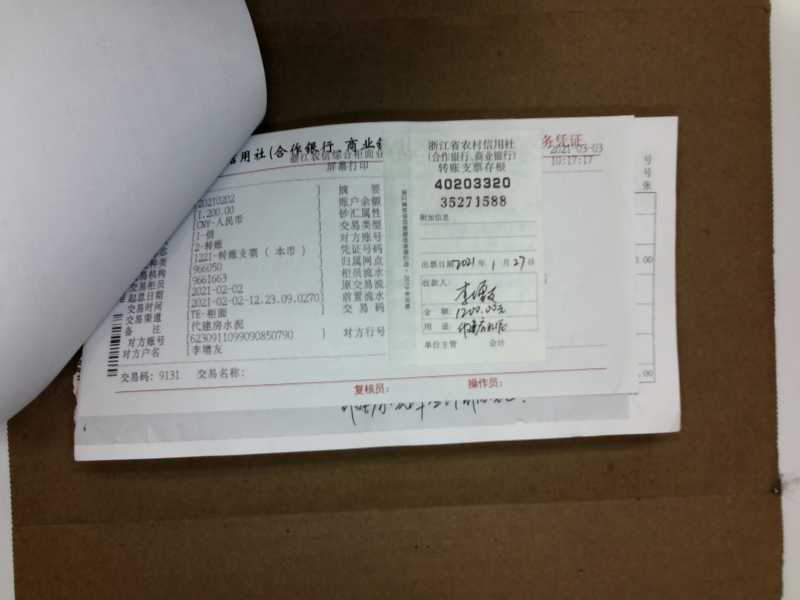 信用社(合作银行、商业银
浙江农信综合柜面业
屏幕打印
务凭证
2021-03-03
10:17:17
20210202
摘 要
1,200.00
账户余额
CNY-人民币
钞汇属性
1-借
交易类型
2-转账
对方账号
1221-转账支票（本币）
凭证号码
966050
归属网点
9661663
柜员流水
交易柜员
2021-02-02
原交易流
起息日期
2021-02-02-12.23.09.0270
前置流水
交易时间
TE-柜面
交易码
交易渠道
代建房水泥
备 注
6230911099090850790
对方行号
对方账号
李增友
对方户名
交易码: 9131 交易名称:
复核员: 操作员:
浙江省农村信用社
(合作银行、商业银行)
转账支票存根
40203320
35271588
附加信息
出票日期 2021 年 1 月 27 日
收款人:
李增友
金 额: 1200.00元
用 途: 代建房水泥
单位主管 会计
号
号
张
.00